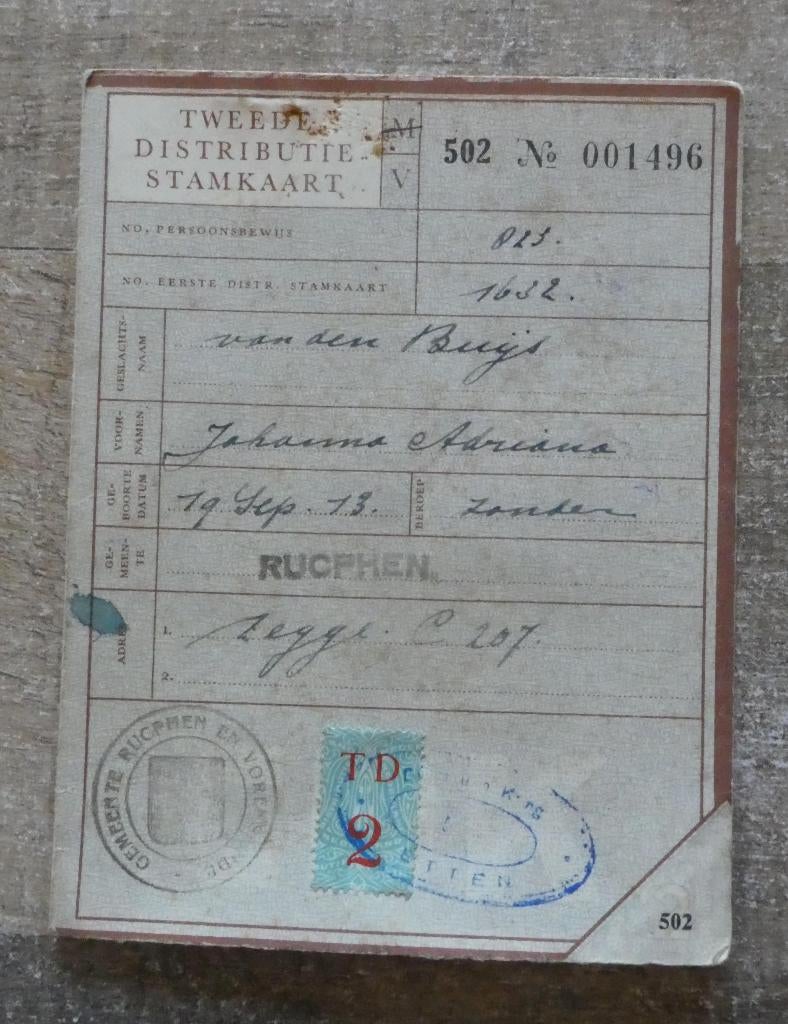 TWEEDE
DISTRIBUTIE-
STAMKAART
M
V
502 № 001496
NO. PERSOONSBEWIJS
NO. EERSTE DISTR. STAMKAART 1632.
GESLACHTS-
NAAM
van den Buijs
VOOR-
NAMEN
Johanna Adriana
GE-
BOORTE
DATUM
19 Sep. 13.
BEROEP
zonder
GE-
MEEN-
TE
RUCPHEN.
ADRES
1. Zegge. C 207.
2.
GEMEENTE RUCPHEN EN
TD
2
ETTEN
502